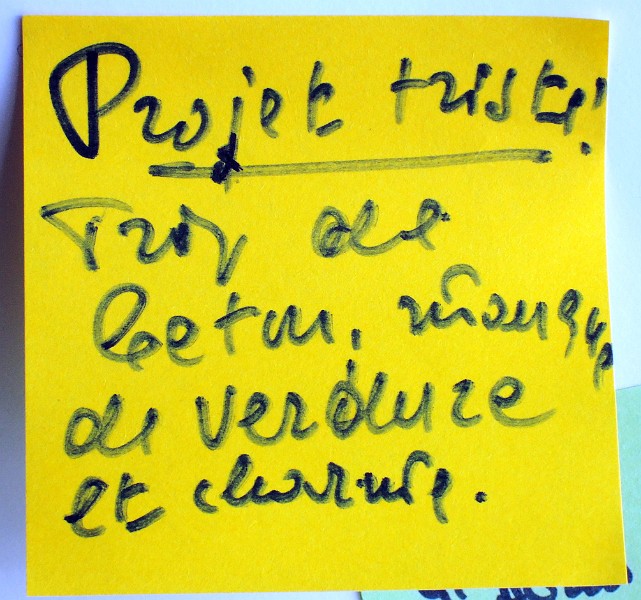 Projet triste!
Trop de
beton, manque
de verdure
et charme.